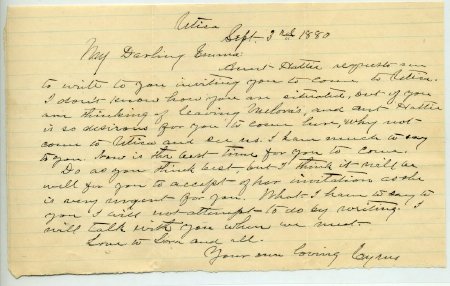 Utica
Sept. 3rd 1880
My Darling Emma
Aunt Hattie requests me
to write to you inviting you to come to Utica.
I don't know how you are situated, but if you
are thinking of leaving and aunt Hattie
is so desirous for you to come here, why not
come to Utica and see us. I have much to say
to you. Now is the best time for you to come.
Do as you think best, but I think it will be
well for you to accept of her invitation as she
is very urgent for you. What I have to say to
you I will not attempt to do by writing. I
will talk with you when we meet.
Love to and all.
Your own loving Cyrus